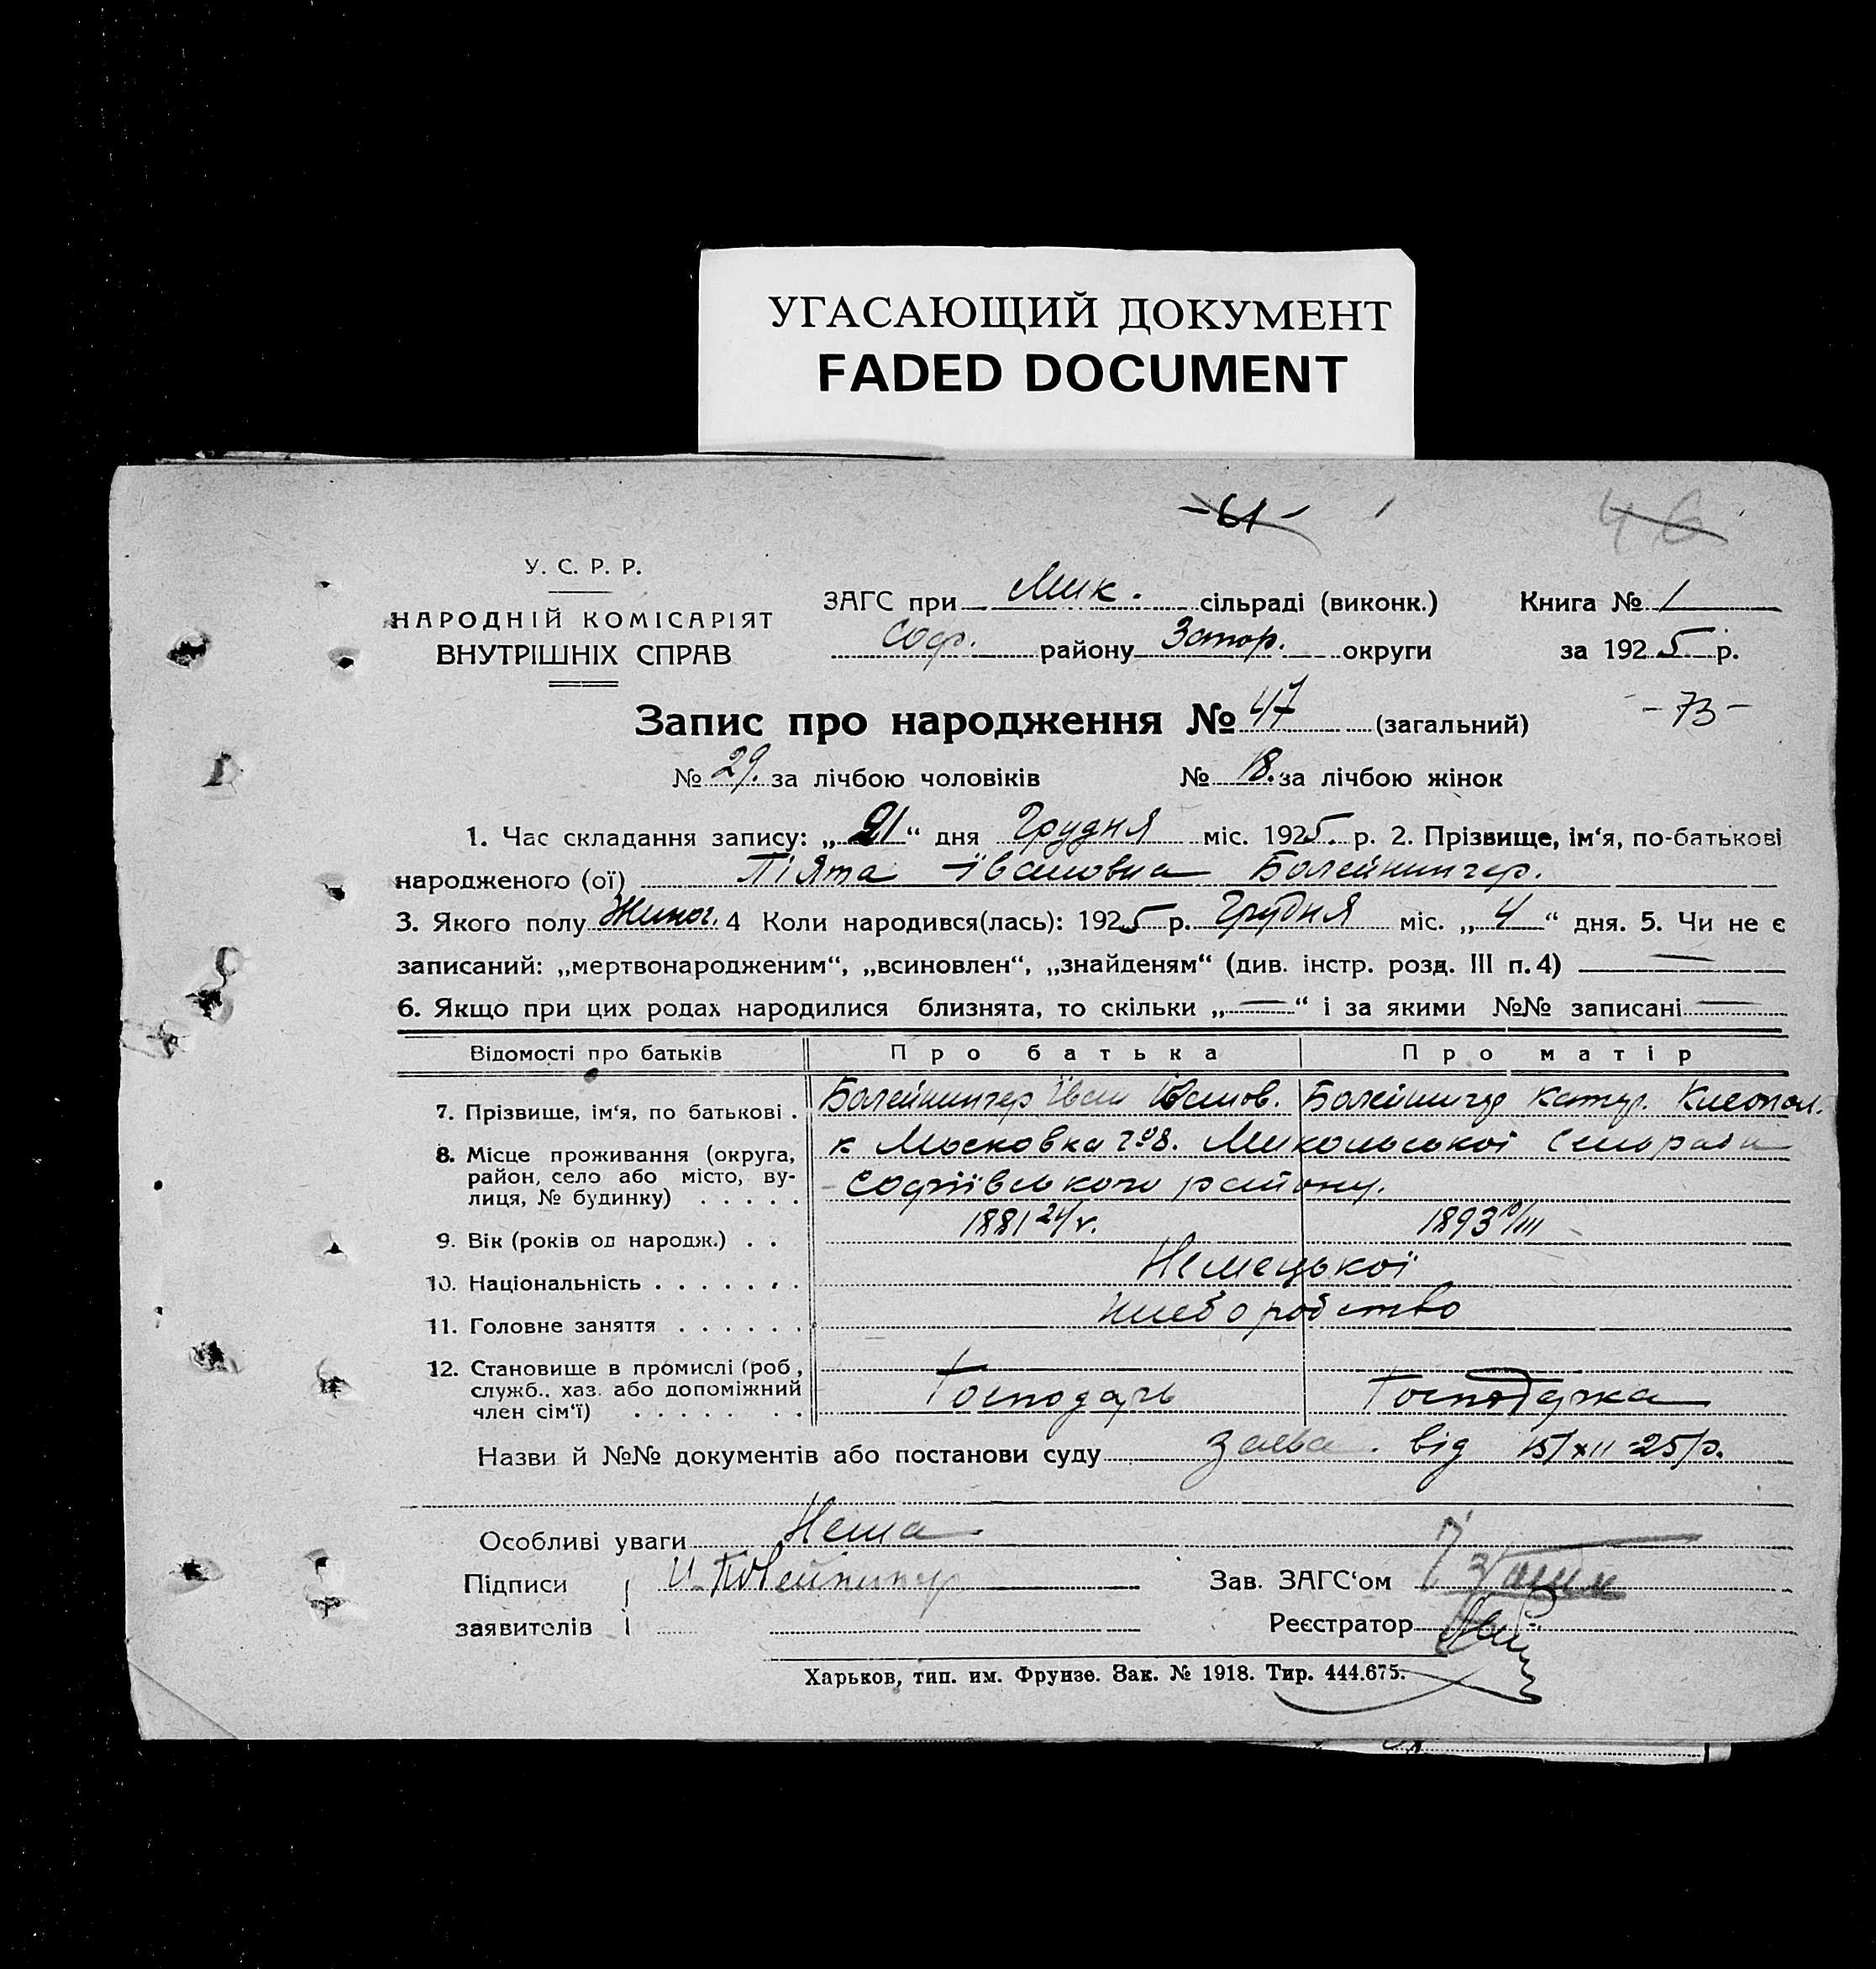 УГАСАЮЩИЙ ДОКУМЕНТ
FADED DOCUMENT
-61-
46
У. С. Р. Р.
НАРОДНІЙ КОМІСАРІЯТ
ВНУТРІШНІХ СПРАВ
ЗАГС при Мик. сільраді (виконк.) Книга № 1
Соф. району Запор. округи за 1925 р.
Запис про народження № 47 (загальний) -73-
№ 29. за лічбою чоловіків № 18. за лічбою жінок
1. Час складання запису: „21“ дня Грудня міс. 1925. р. 2. Прізвище, ім‘я, по-батькові
народженого (ої) Івановна Болейнингер.
3. Якого полу Жиноч. 4 Коли народився(лась): 1925 р. Грудня міс. „4“ дня. 5. Чи не є
записаний: „мертвонародженим“, „всиновлен“, „знайденям“ (див. інстр. розд. III п. 4) —
6. Якщо при цих родах народилися близнята, то скільки „—“ і за якими №№ записані —
Відомості про батьків Про батька Про матір
7. Прізвище, ім‘я, по батькові . Болейнингер Іван Іванов. Болейнингер Катер.
8. Місце проживання (округа, район, село або місто, вулиця, № будинку) . . . . . к. Московка Микольської Сельради
Софіївського району.
9. Вік (років од народж.) . . 1881 24/V. 1893 10/III
10. Національність . . . . . . . Немецької
11. Головне заняття . . . . . . Хлеборобство
12. Становище в промислі (роб., служб., хаз. або допоміжний член сім‘ї) . . . . . . . Господарь Господарка
Назви й №№ документів або постанови суду Заява. від 15/XII-25/р.
Особливі уваги Нема
Підписи И. Болейнингер Зав. ЗАГС‘ом
заявителів Реєстратор
Харьков, тип. им. Фрунзе. Зак. № 1918. Тир. 444.675.